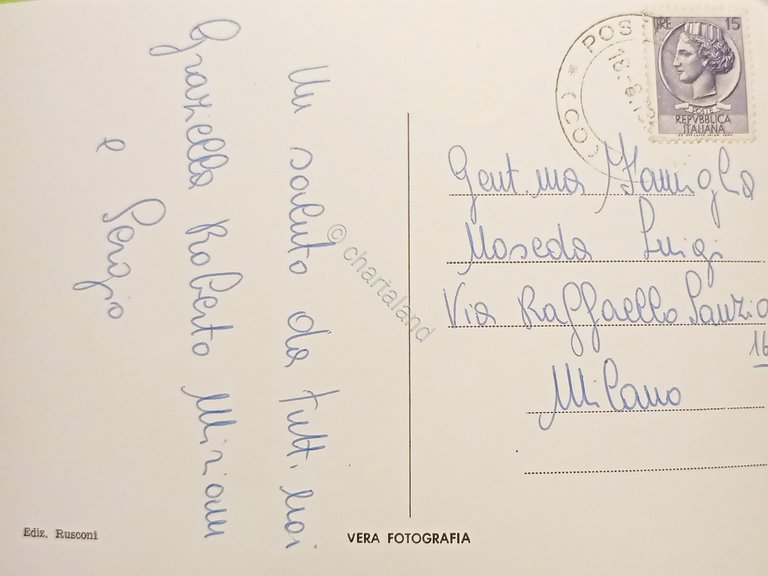 Un saluto da tutti noi
Graziella Roberto Miriam
e Sergio
LIRE 15
POSTE
REPVBBLICA
ITALIANA
POS
(CO)
Gent.ma Famiglia
Moseda Luigi
Via Raffaello Sanzio
16
Milano
© chartaland
Ediz. Rusconi
VERA FOTOGRAFIA